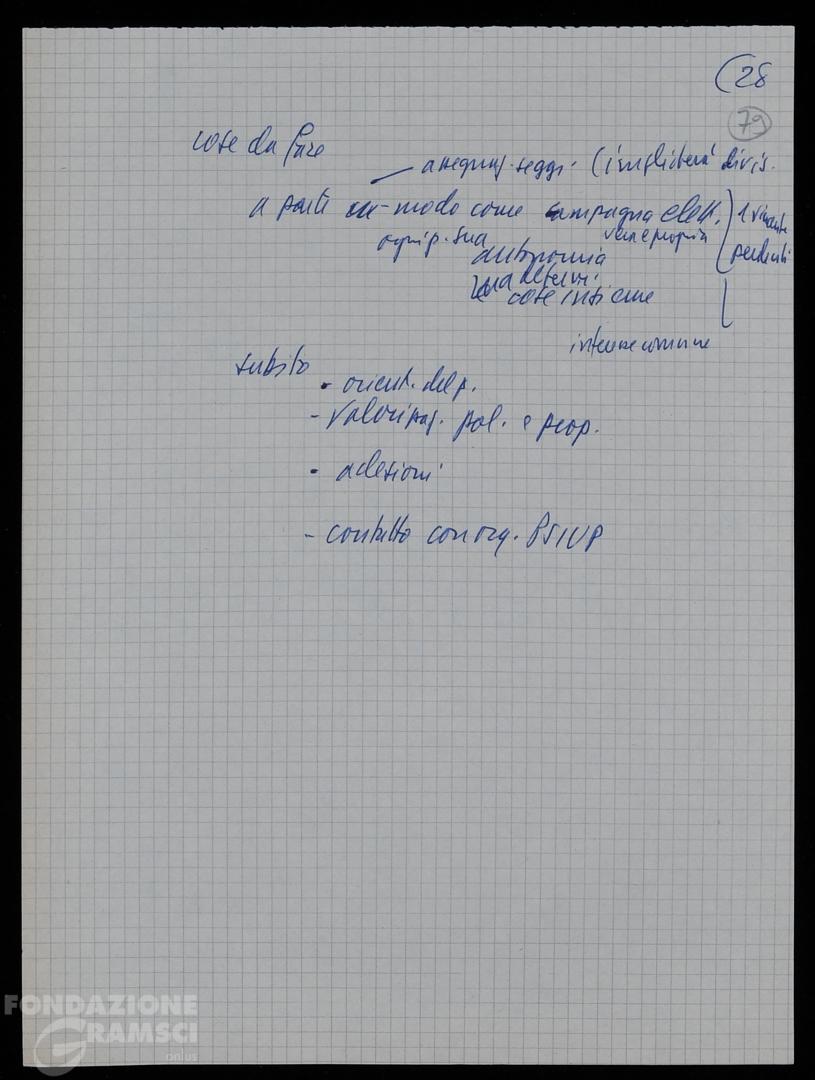 (28
79
cose da fare
assegnaz. seggi. (impliciterà divis.
a parte modo come campagna elett.
vera e propria
ognip. sua
autonomia
ma
cose insieme
intese comune
subito
• orient. del p.
- Valorizzaz. pol. e prop.
• adesioni
- contatto con org. PSIUP
FONDAZIONE
GRAMSCI
onlus